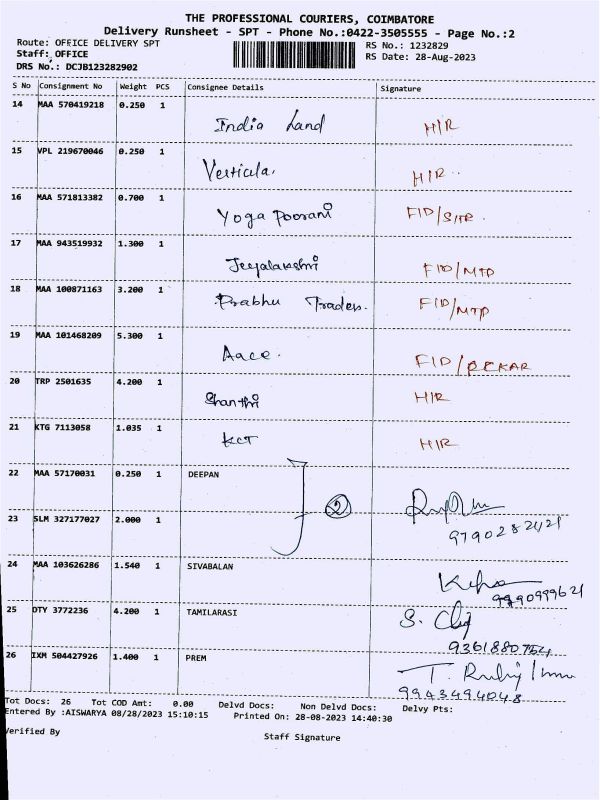 THE PROFESSIONAL COURIERS, COIMBATORE
Delivery Runsheet - SPT - Phone No.:0422-3505555 - Page No.:2
Route: OFFICE DELIVERY SPT RS No.: 1232829
Staff: OFFICE RS Date: 28-Aug-2023
DRS No.: DCJB123282902
S No Consignment No Weight PCS Consignee Details Signature
14 MAA 570419218 0.250 1 India Land H/R
15 VPL 219670046 0.250 1 Verticula. H/R
16 MAA 571813382 0.700 1 Yoga Poorani FID/SITR.
17 MAA 943519932 1.300 1 Jeyalakshmi FID/MTP
18 MAA 100871163 3.200 1 Prabhu Traders. FID/MTP
19 MAA 101468209 5.300 1 Aace. FID/
20 TRP 2501635 4.200 1 Shanthi H/R
21 KTG 7113058 1.035 1 KCT H/R
22 MAA 57170031 0.250 1 DEEPAN
2
23 SLM 327177027 2.000 1
24 MAA 103626286 1.540 1 SIVABALAN
25 DTY 3772236 4.200 1 TAMILARASI S.
9361880754
26 IXM 504427926 1.400 1 PREM T.
9943494048
Tot Docs: 26 Tot COD Amt: 0.00 Delvd Docs: Non Delvd Docs: Delvy Pts:
Entered By :AISWARYA 08/28/2023 15:10:15 Printed On: 28-08-2023 14:40:30
Verified By Staff Signature